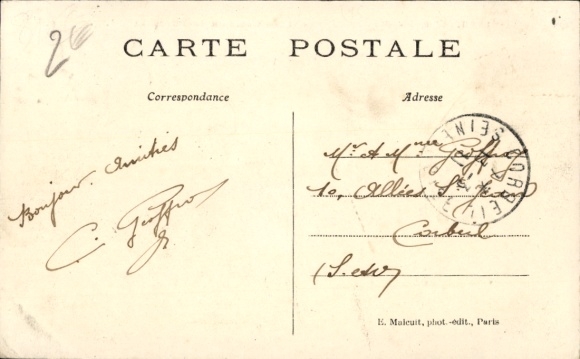 26
CARTE POSTALE
Correspondance
Adresse
Bonjour. Amitiés
C. Geoffroy
Mr & Mme Geoffroy
10, Allées St
Corbeil
(S. & O)
CORBEIL
SEINE
E. Malcuit, phot.-édit., Paris